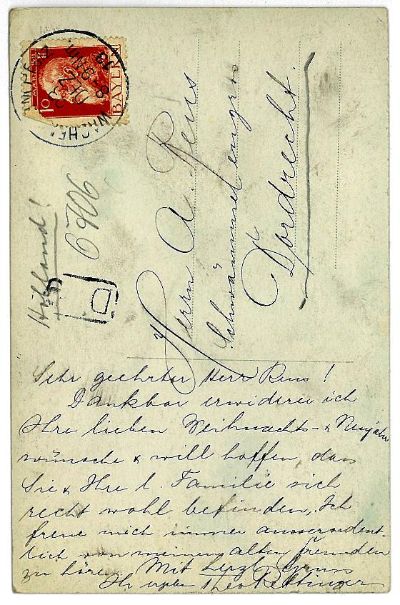 10
BAYERN
MÜNCHEN
Holland!
6906
D
Herrn A. Rens
Schwämme engros
Dordrecht.
Sehr geehrter Herr Rens!
Dankbar erwidere ich
Ihre lieben Weihnachts- & Neujahrs
wünsche & will hoffen, dass
Sie & Ihre l. Familie sich
recht wohl befinden. Ich
freue mich immer ausserordent-
lich von meinem alten Freunden
zu hören. Mit herzl. Gruss
Ihr Theo Rettinger